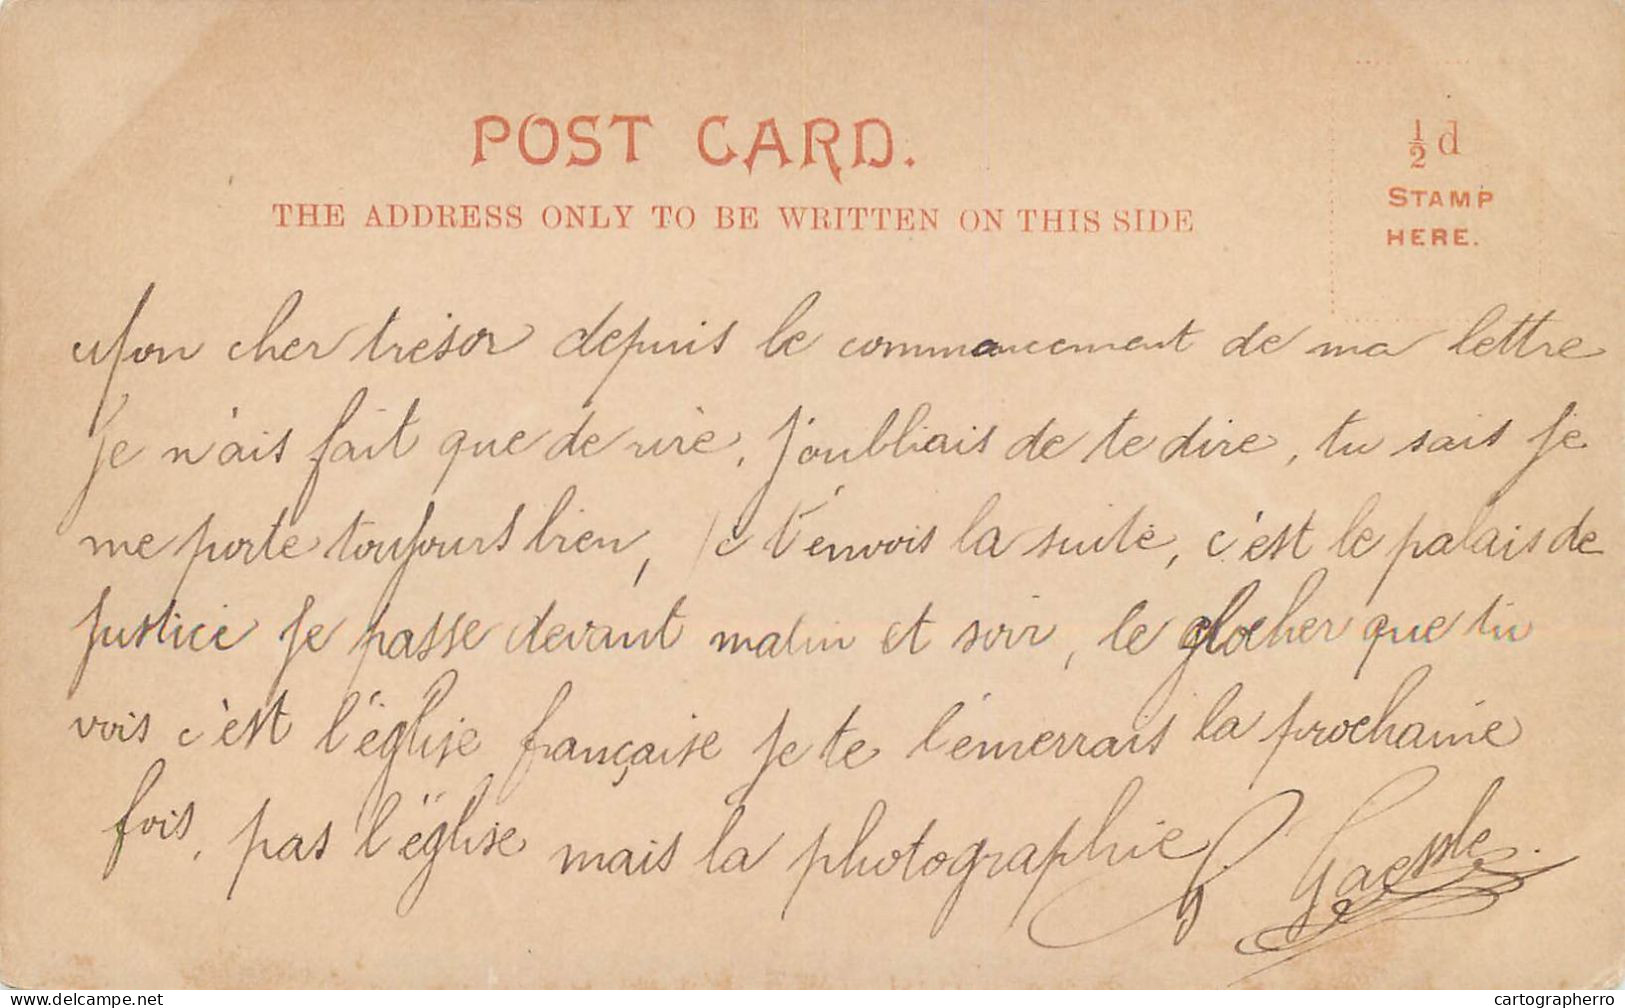 POST CARD.
THE ADDRESS ONLY TO BE WRITTEN ON THIS SIDE
½ d
STAMP
HERE.
Mon cher trésor depuis le commancement de ma lettre
je n'ais fait que de rire, j'oubliais de te dire, tu sais je
me porte toujours bien, je t'envois la suite, c'est le palais de
justice je passe devant matin et soir, le glocher que tu
vois c'est l'église française je te l'émerrais la prochaine
fois, pas l'église mais la photographie
www.delcampe.net
cartographerro